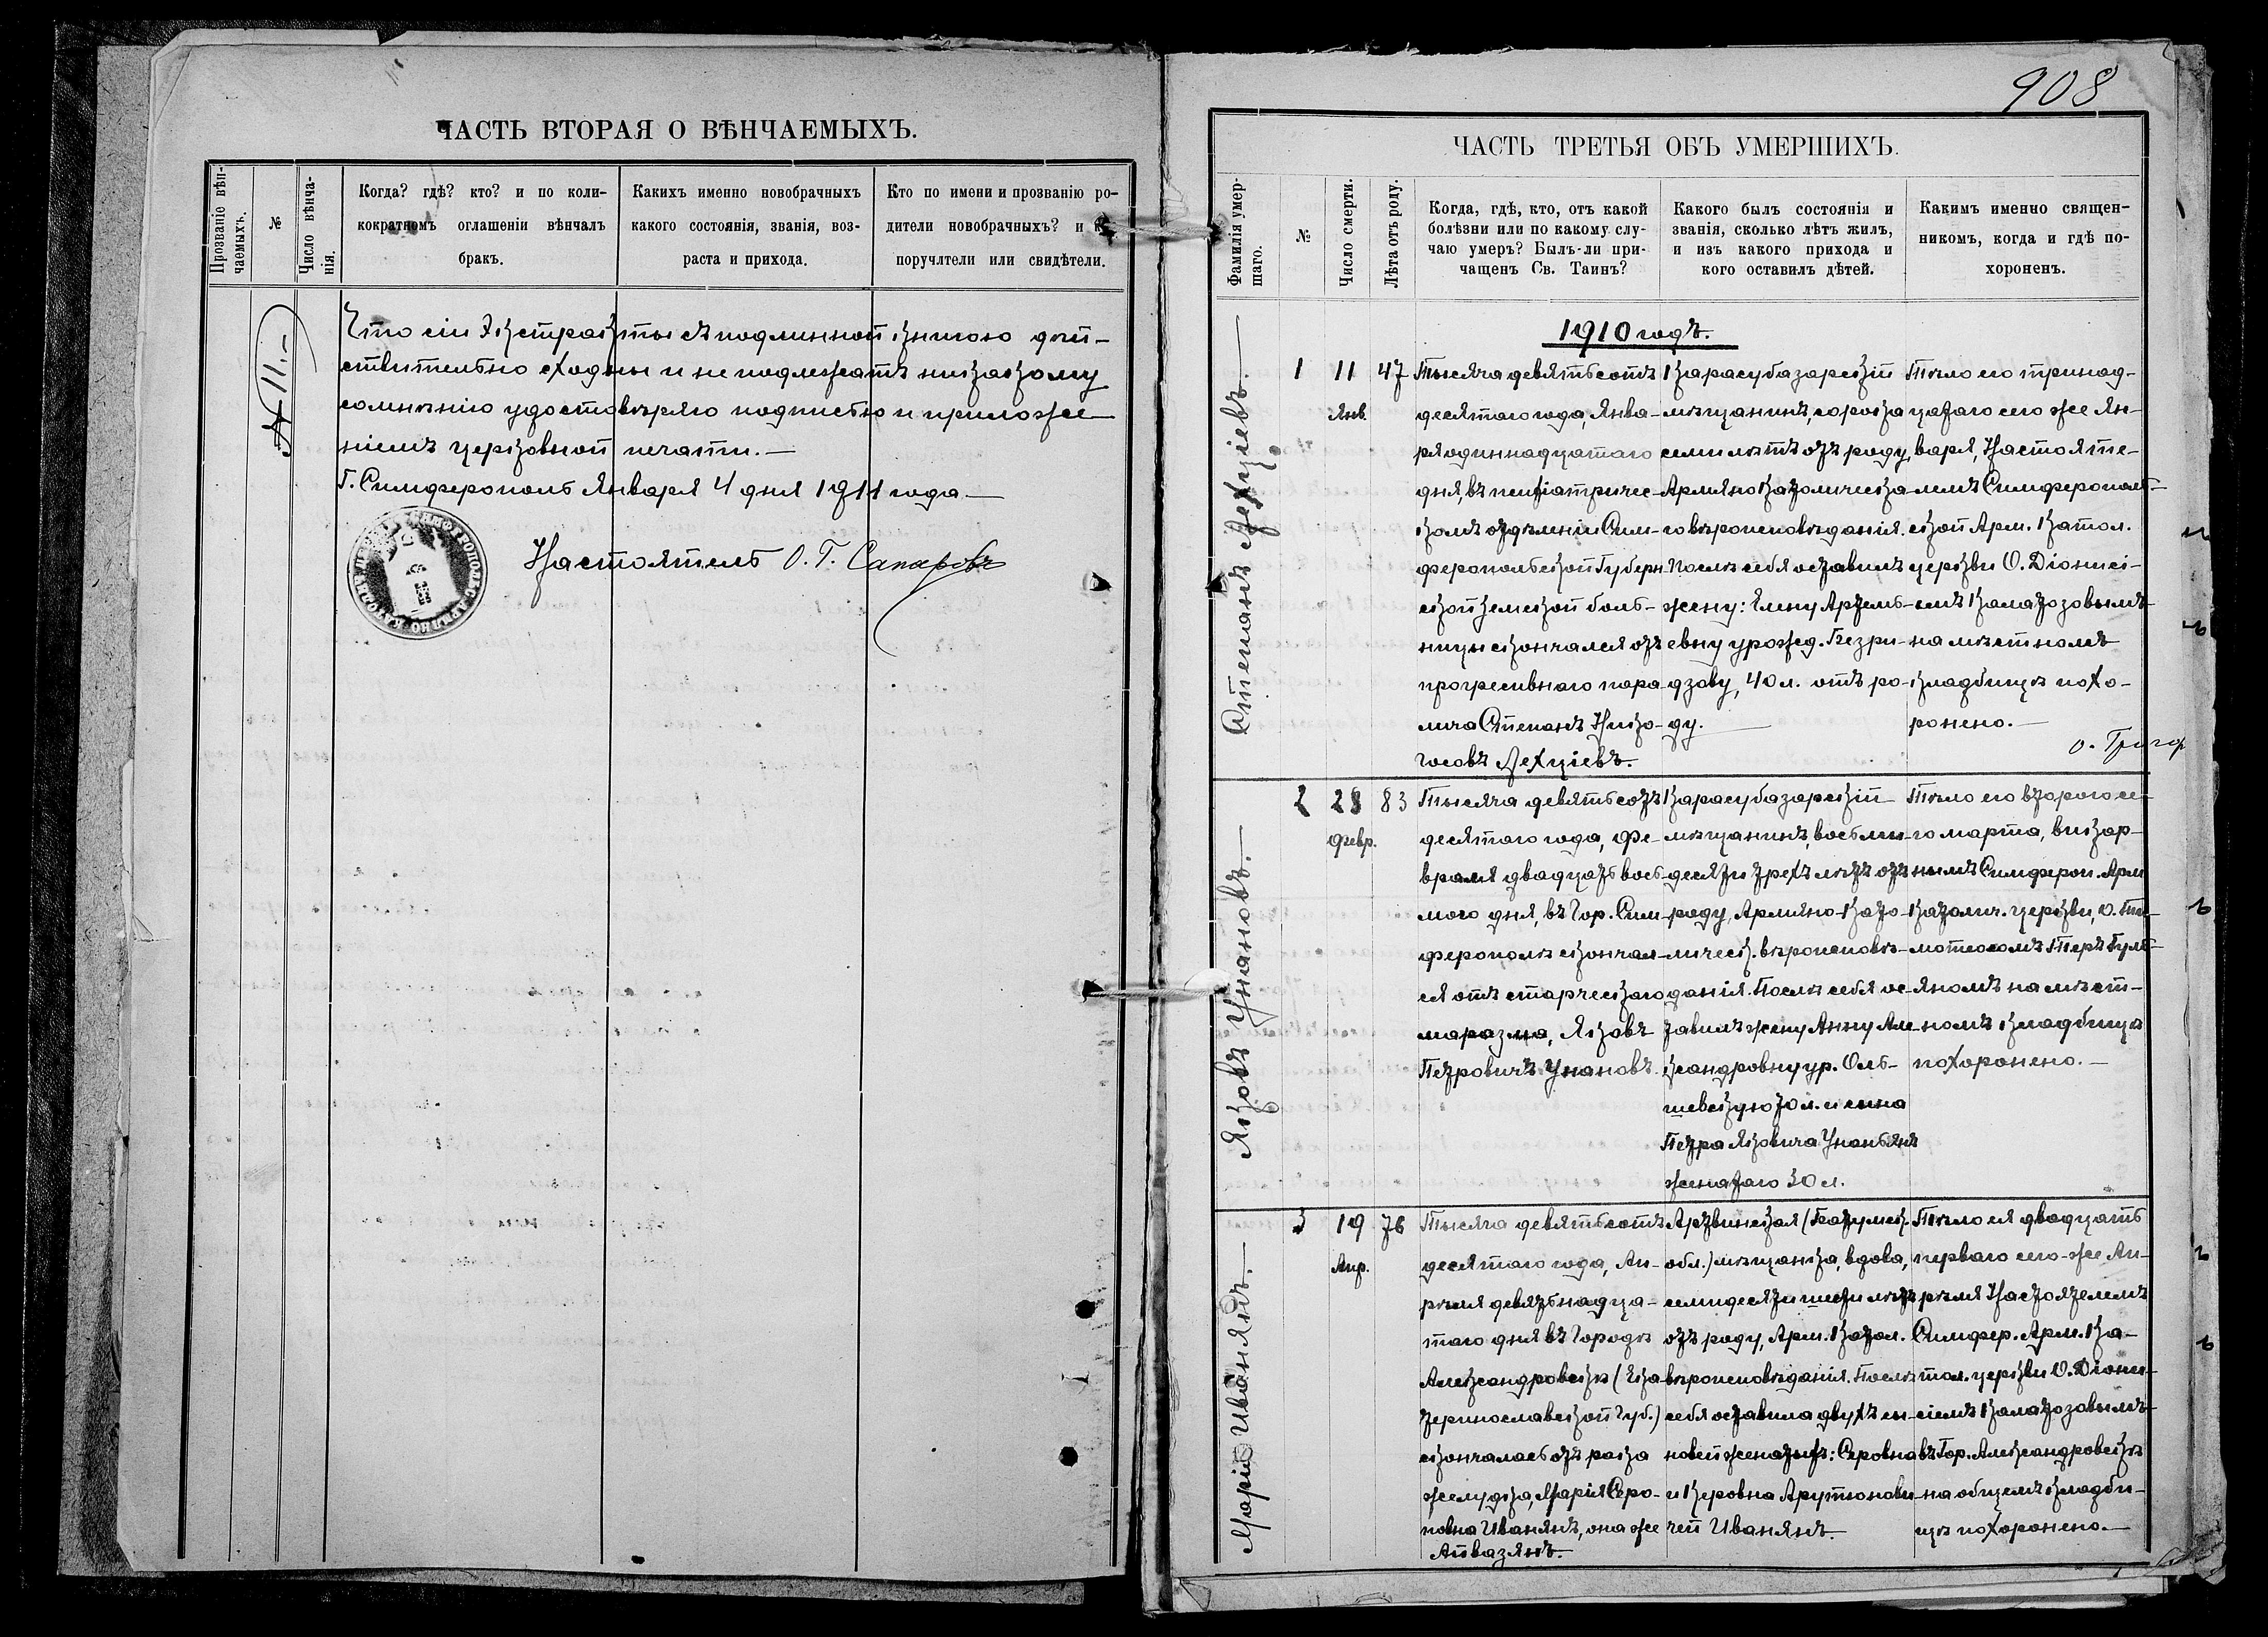 ЧАСТЬ ВТОРАЯ О ВѢНЧАЕМЫХЪ.
Прозваніе вѣн-
чаемыхъ.
№
Число вѣнча-
нія.
Когда? гдѣ? кто? и по коли-
кократномъ оглашеніи вѣнчалъ
бракъ.
Какихъ именно новобрачныхъ
какого состоянія, званія, воз-
раста и прихода.
Кто по имени и прозванію ро-
дители новобрачныхъ? и
поручители или свидѣтели.
№ 11.—
Что сіи Экстракты съ подлинной книгою дѣй-
ствительно сходны и не подлежатъ никакому
сомнѣнію удостовѣряю подписью и приложе-
ніемъ церковной печати.—
Г. Симферополь Января 4 дня 1911 года—
Настоятель О. Г. Сапаровъ
908
ЧАСТЬ ТРЕТЬЯ ОБЪ УМЕРШИХЪ.
Фамилія умер-
шаго.
№
Число смерти.
Лѣта отъ роду.
Когда, гдѣ, кто, отъ какой
болѣзни или по какому слу-
чаю умеръ? Былъ-ли при-
чащенъ Св. Таинъ?
Какого былъ состоянія и
званія, сколько лѣтъ жилъ,
и изъ какого прихода и
кого оставилъ дѣтей.
Какимъ именно священ-
никомъ, когда и гдѣ по-
хороненъ.
1910 годъ.
Степанъ Лехціевъ.—
1
11
Янв.
47
Тысяча девятьсотъ
десятаго года, Янва-
ря одиннадцатаго
дня, въ психіатричес-
комъ отдѣленіи Сим-
феропольской Губерн
ской Земской боль-
ницы скончался отъ
прогресивнаго пара-
лича Степанъ Нико-
госовъ Лехціевъ.
Карасубазарскій
мѣщанинъ, сорока
семи лѣтъ отъ роду,
Армяно Католическа-
го вѣроисповѣданія.
Послѣ себя оставилъ
жену: Елену Артемь-
евну урожд. Безри-
дзову, 40 л. отъ ро-
ду.—
Тѣло его тринад-
цатаго сего же Ян-
варя, Настояте-
лемъ Симферополь-
ской Арм. Катол.
церкви О. Діонисі-
емъ Калатозовымъ
на мѣстномъ
кладбищѣ похо-
ронено.—
о. Григор
Яковъ Унановъ.—
2
28
Февр.
83
Тысяча девятьсотъ
десятаго года, Фе-
враля двадцать вось
мого дня, въ Гор. Сим-
ферополѣ скончал-
ся отъ старческаго
маразма, Яковъ
Петровичъ Унановъ.
Карасубазарскій
мѣщанинъ, восьми-
десяти трехъ лѣтъ отъ
роду, Армяно-Като-
лическ. вѣроисповѣ-
данія. Послѣ себя ос-
тавилъ жену Анну Але-
ксандровну ур. Оль-
шевскую 70 л. и сына
Петра Яковича Унановъ
женатаго 30 л.
Тѣло его второго се-
го марта, викар-
нымъ Симфероп. Арм
Католич. церкви, О. Ти-
мотеосомъ Теръ Гуль-
яномъ на мѣст-
номъ кладбищѣ
похоронено.—
Марія Иванянъ.—
3
19
Апр.
76
Тысяча девятьсотъ
десятаго года, Ап-
рѣля девятьнадца-
таго дня въ Городѣ
Александровскѣ (Ека
теринославской Губ.)
скончалась отъ рака
желудка, Марія Серо-
повна Иванянъ, она же
Айвазянъ.—
Артвинская (Батумск.
обл.) мѣщанка, вдова,
семидесяти шести лѣтъ
отъ роду, Арм. Катол.
вѣроисповѣданія. Послѣ
себя оставила двухъ сы-
новей женатыхъ: Серовна
и Керовна Арутюнови-
чей Иванянъ.—
Тѣло ея двадцать
перваго сего-же Ап-
рѣля Настоятелемъ
Симфер. Арм. Ка-
тол. церкви О. Діони-
сіемъ Калатозовымъ
въ Гор. Александровскѣ
на общемъ кладби-
щѣ похоронено.—